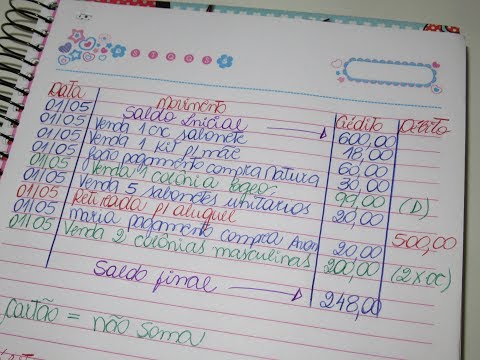 Data Movimento Crédito Débito
01/05 Saldo Inicial → 600,00
01/05 Venda 1 cx sabonete 18,00
01/05 Venda 1 Kit p/ mãe 60,00
01/05 João pagamento compra natura 30,00
01/05 Venda 1 colônia Egeo 99,00 (D)
01/05 Venda 5 sabonetes unitários 20,00
01/05 Retirada p/ aluguel 500,00
01/05 Maria pagamento compra Avon 20,00
01/05 Venda 2 colônias masculinas 200,00 (2x OC)
Saldo final → 248,00
cartão = não soma